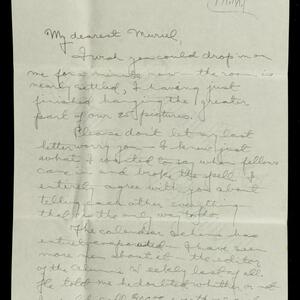 My dearest Muriel,
I wish you could drop in on
me for a minute now - the room is
nearly settled, I having just
finished hanging the greater
part of our 25 pictures.
Please don't let my last
letter worry you - I knew just
what I wanted to say when fellows
came in and broke the spell. I
entirely agree with you about
telling each other everything -
that is the only way to do.
The calendar scheme has
entirely - I have seen
more men about it - the editor
of the Alumni Weekly last of all.
He told me he doubted whether or not